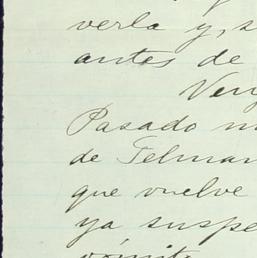 verla y, s
antes de
Ven
Pasado m
de Telmar
que vuelve
ya suspe
vómito